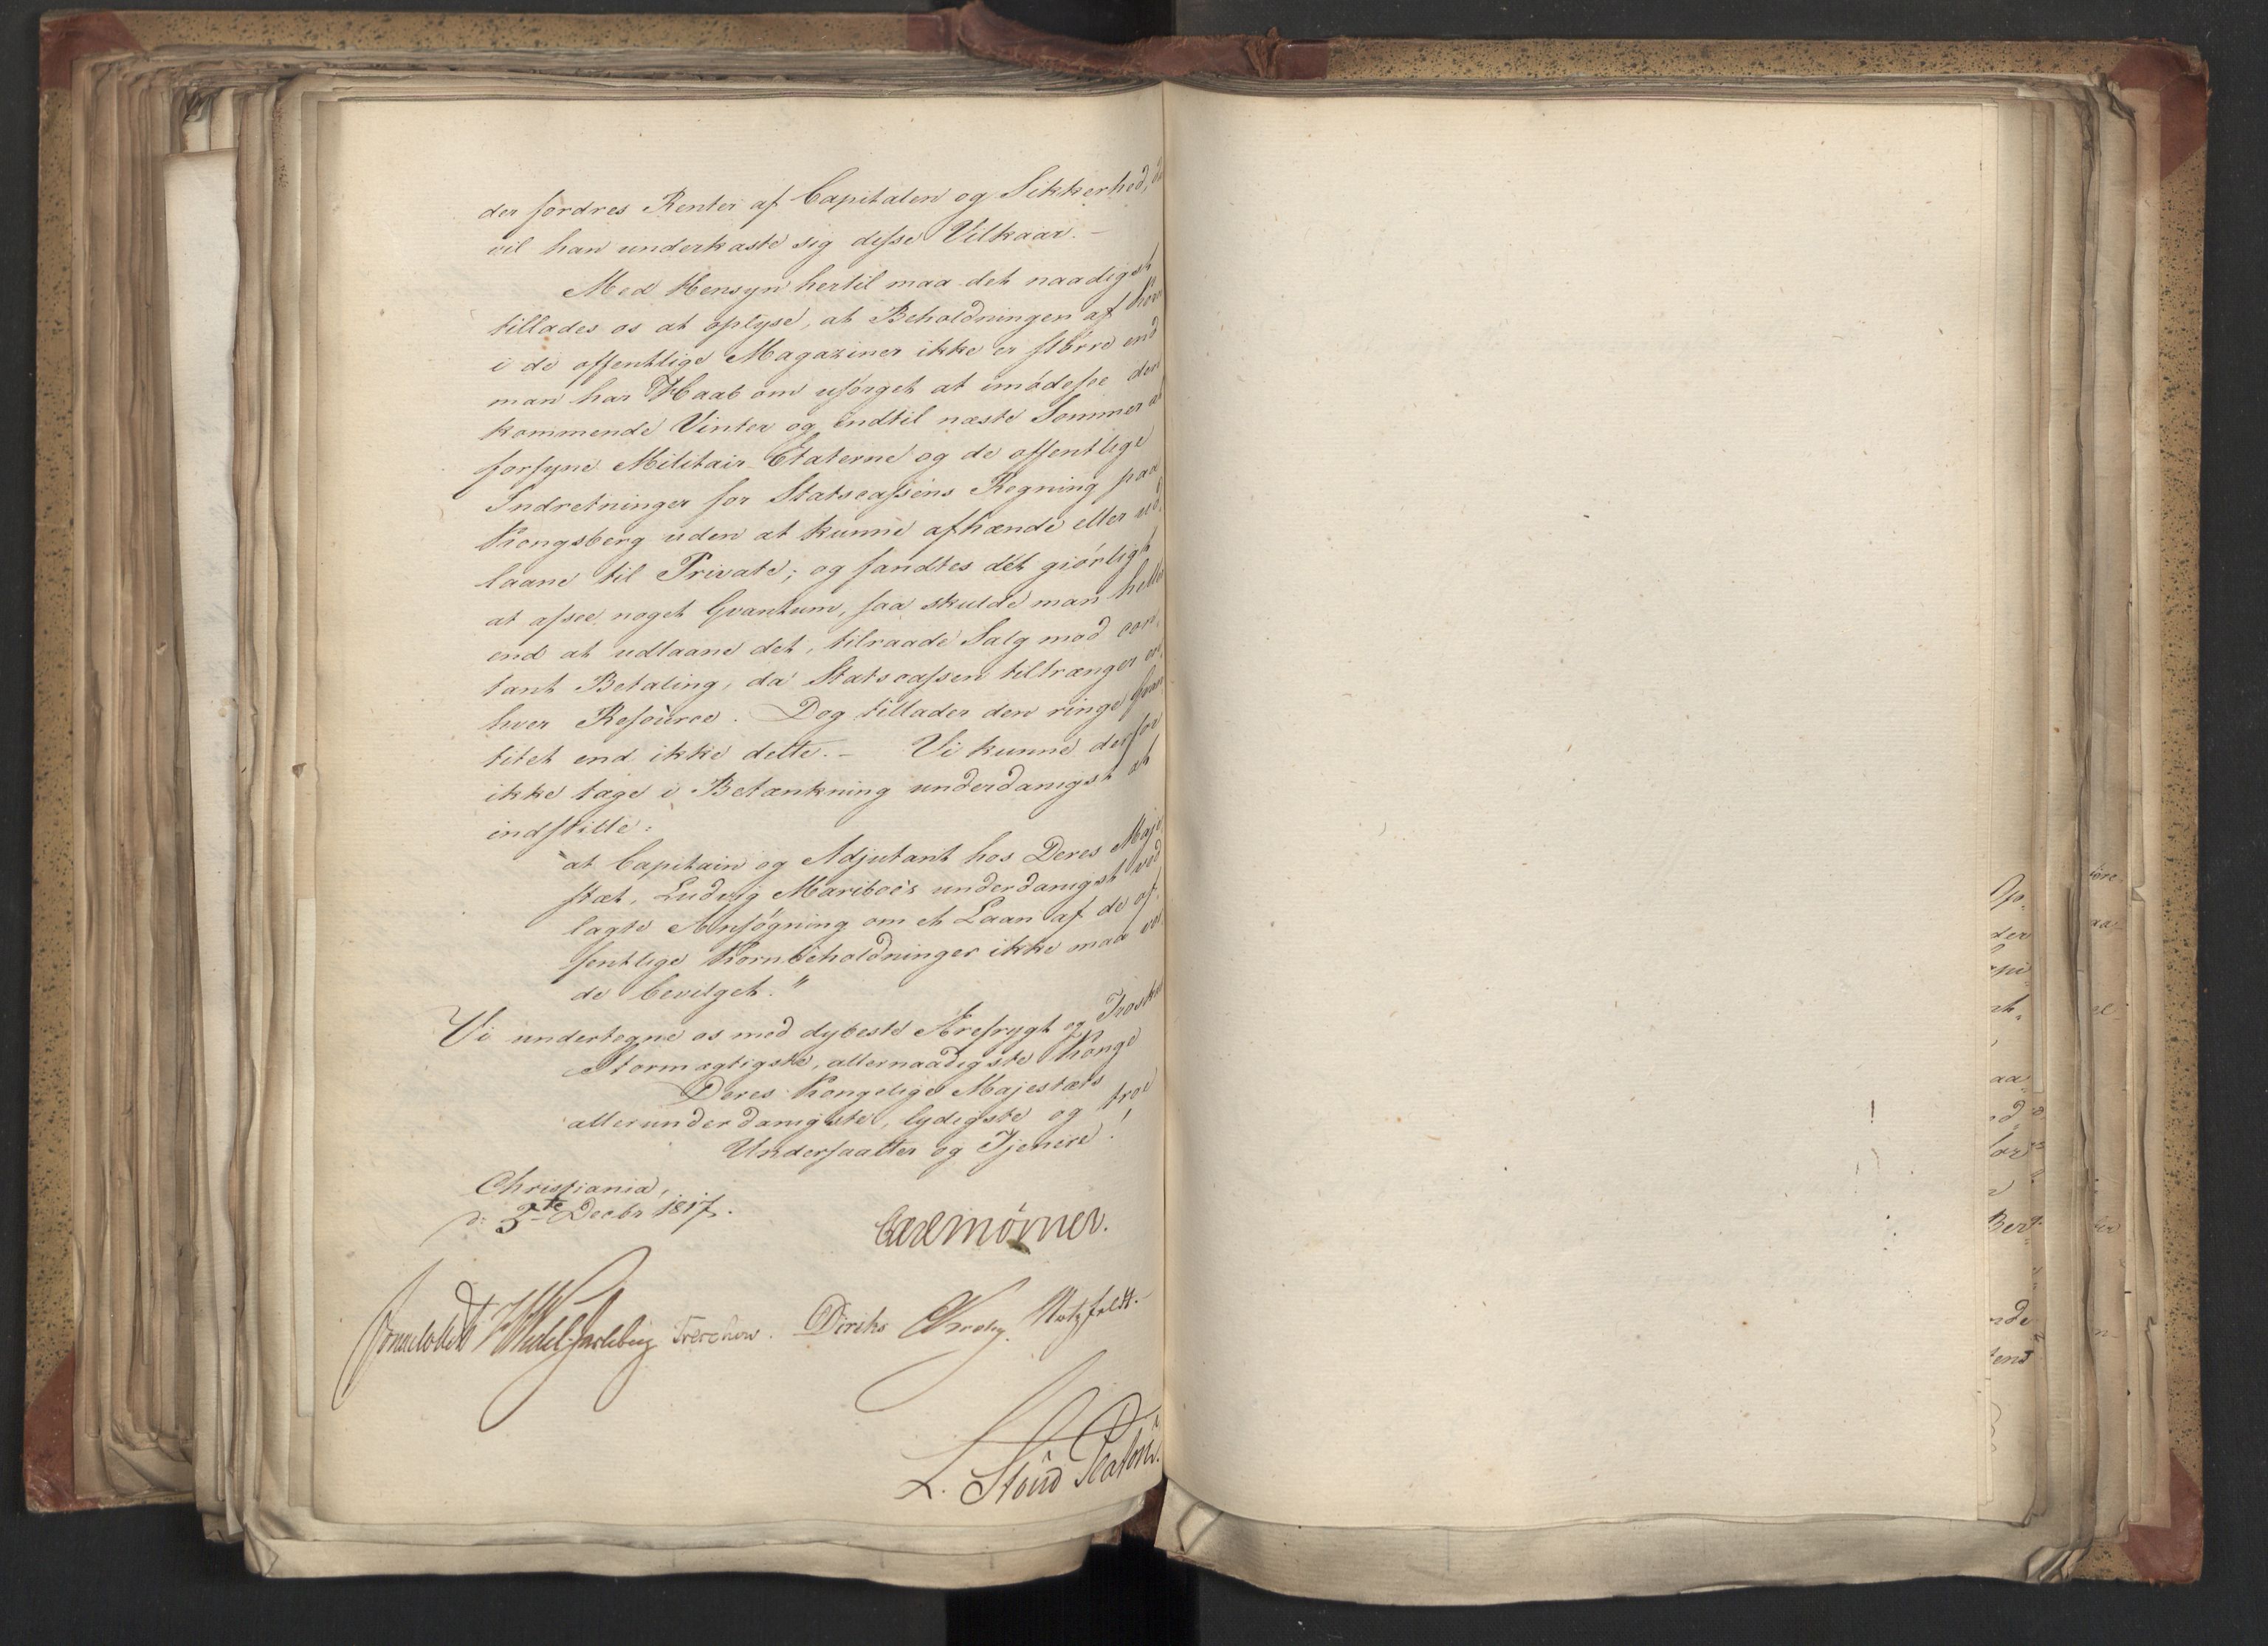 der fordres Renter af Capitalen og Sikkerhed,
vil han underkaste sig disse Vilkaar. –
Med Hensyn hertil maa det naadigst
tillades os at oplyse, at Beholdningen af Korn
i de offentlige Magaziner ikke er større end
man har Haab om usørget at imødesee den
kommende Vinter og indtil næste Sommer at
forsyne Militair-Etaterne og de offentlige
Indretninger for Statscassens Regning paa
Kongsberg uden at kunne afhænde eller ud
laane til Private; og fandtes det giørligt
at afsee noget Qvantum, saa skulde man heller
end at udlaane det, tilraade Salg mod con
tant Betaling, da Statscassen tiltrænger en
hver Resource. Dog tillader den ringe Qvan
titet end ikke dette. – Vi kunne derfor
ikke tage i Betænkning underdanigst at
indstille:
"at Capitain og Adjutant hos Deres Maje
stæt, Ludvig Mariboe's underdanigst ved
lagte Ansøgning om et Laan af de of
fentlige Kornbeholdninger ikke maa vor
de bevilget."
Vi undertegne os med dybeste Ærefrygt og Troskab
Stormægtigste, allernaadigste Konge
Deres Kongelige Majestæts
allerunderdanigste, lydigste og troe
Undersaatter og Tjenere!
Christiania,
d: 3te Decbr 1817.
Carl Mörner.
Sommerhielm HWedel-Jarlsberg Treschow. Diriks CKrohg. Motzfeldt.
L. Stoud Platou.